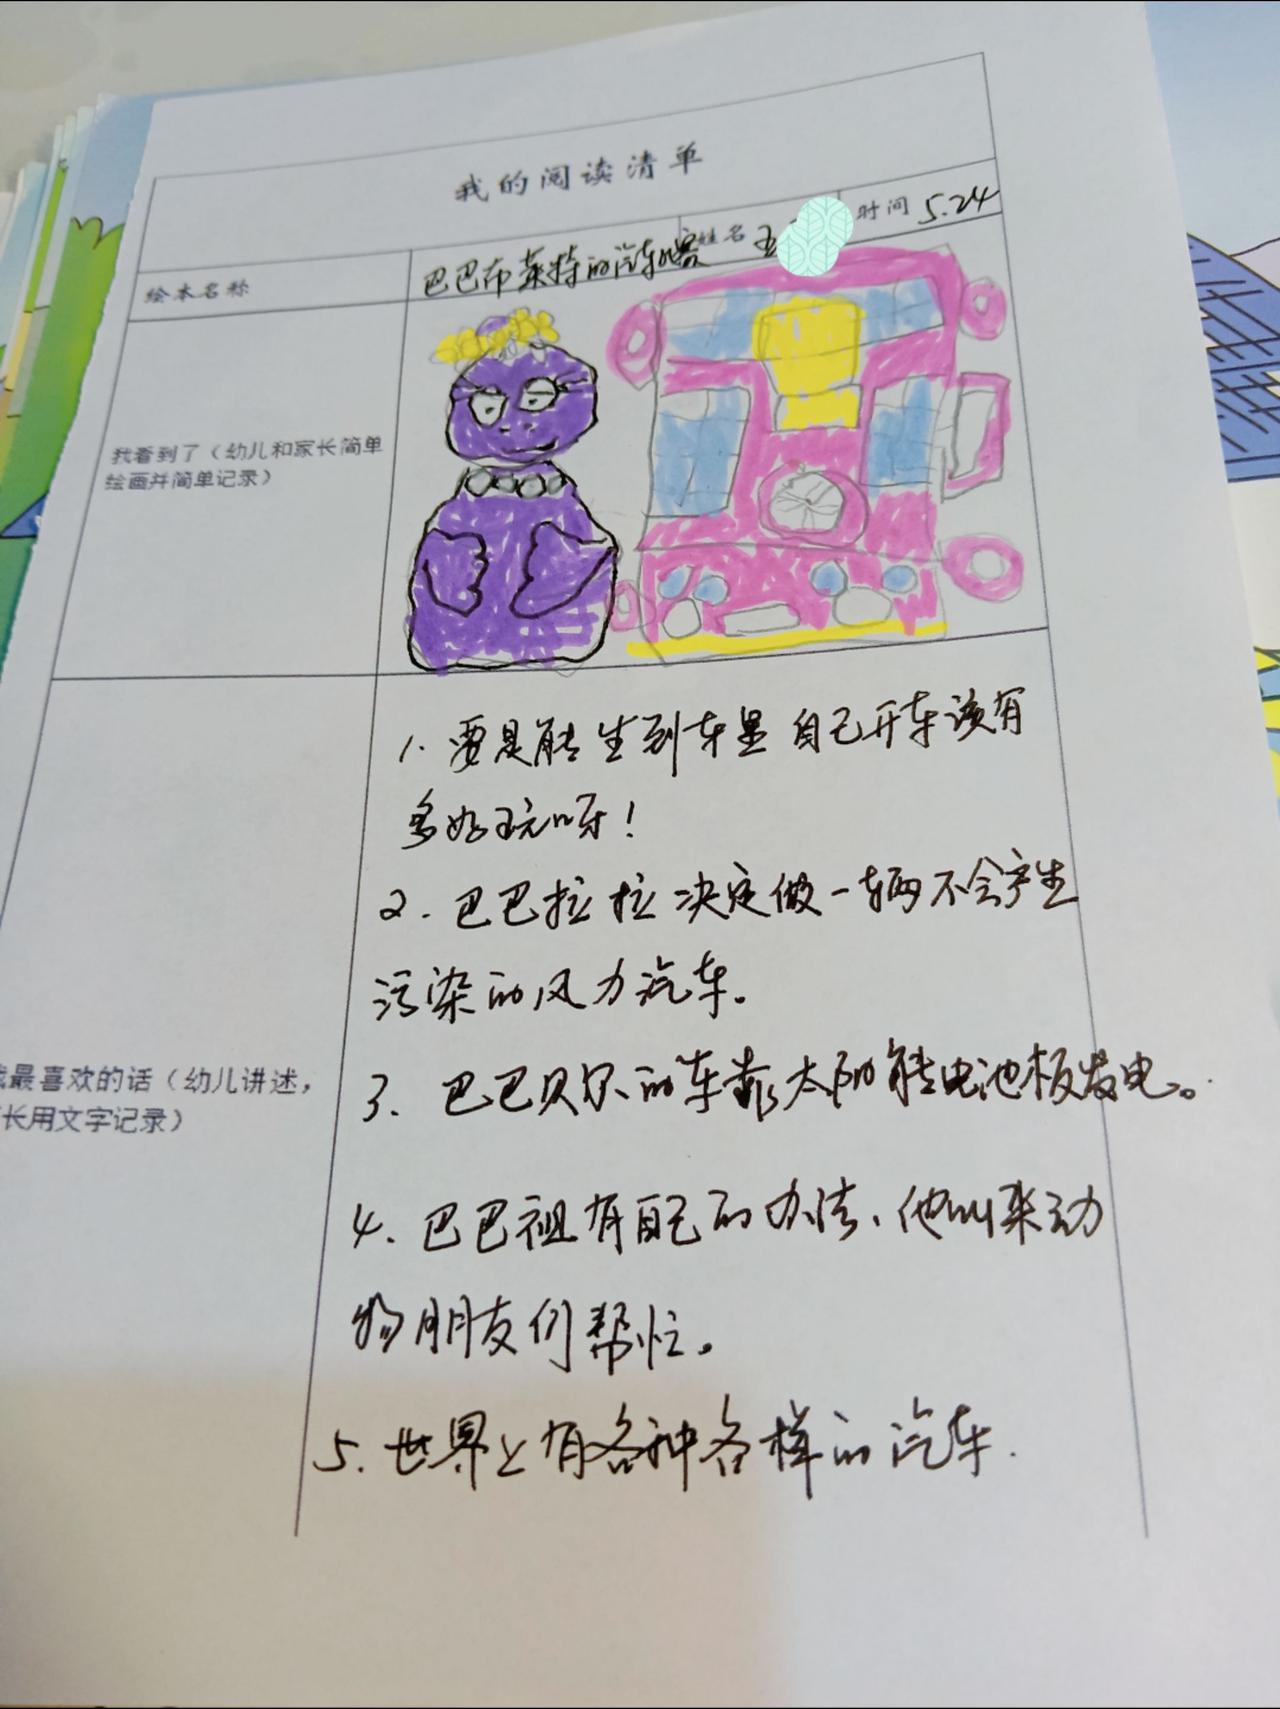 我的阅读清单
绘本名称 巴巴布莱特的汽车比赛 姓名 王 时间 5.24
我看到了（幼儿和家长简单
绘画并简单记录）
1. 要是能坐到车里自己开车该有
多好玩呀！
2. 巴巴拉拉决定做一辆不会产生
污染的风力汽车.
3. 巴巴贝尔的车靠太阳能电池板发电。
最喜欢的话（幼儿讲述，
长用文字记录）
4. 巴巴祖有自己的办法、他叫来动
物朋友们帮忙。
5. 世界上有各种各样的汽车.